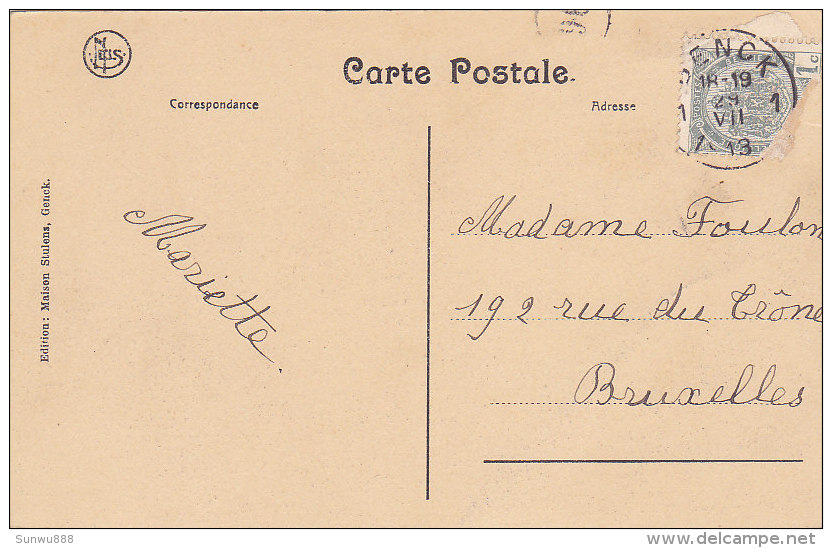 Nels.
Carte Postale.
Correspondance
Adresse
GENCK
18-19
29
VII
13
1
1
1c
Edition: Maison Stulens, Genck.
Mariette.
Madame Foulon
192 rue du Trône
Bruxelles
Sunwu888
delcampe.net